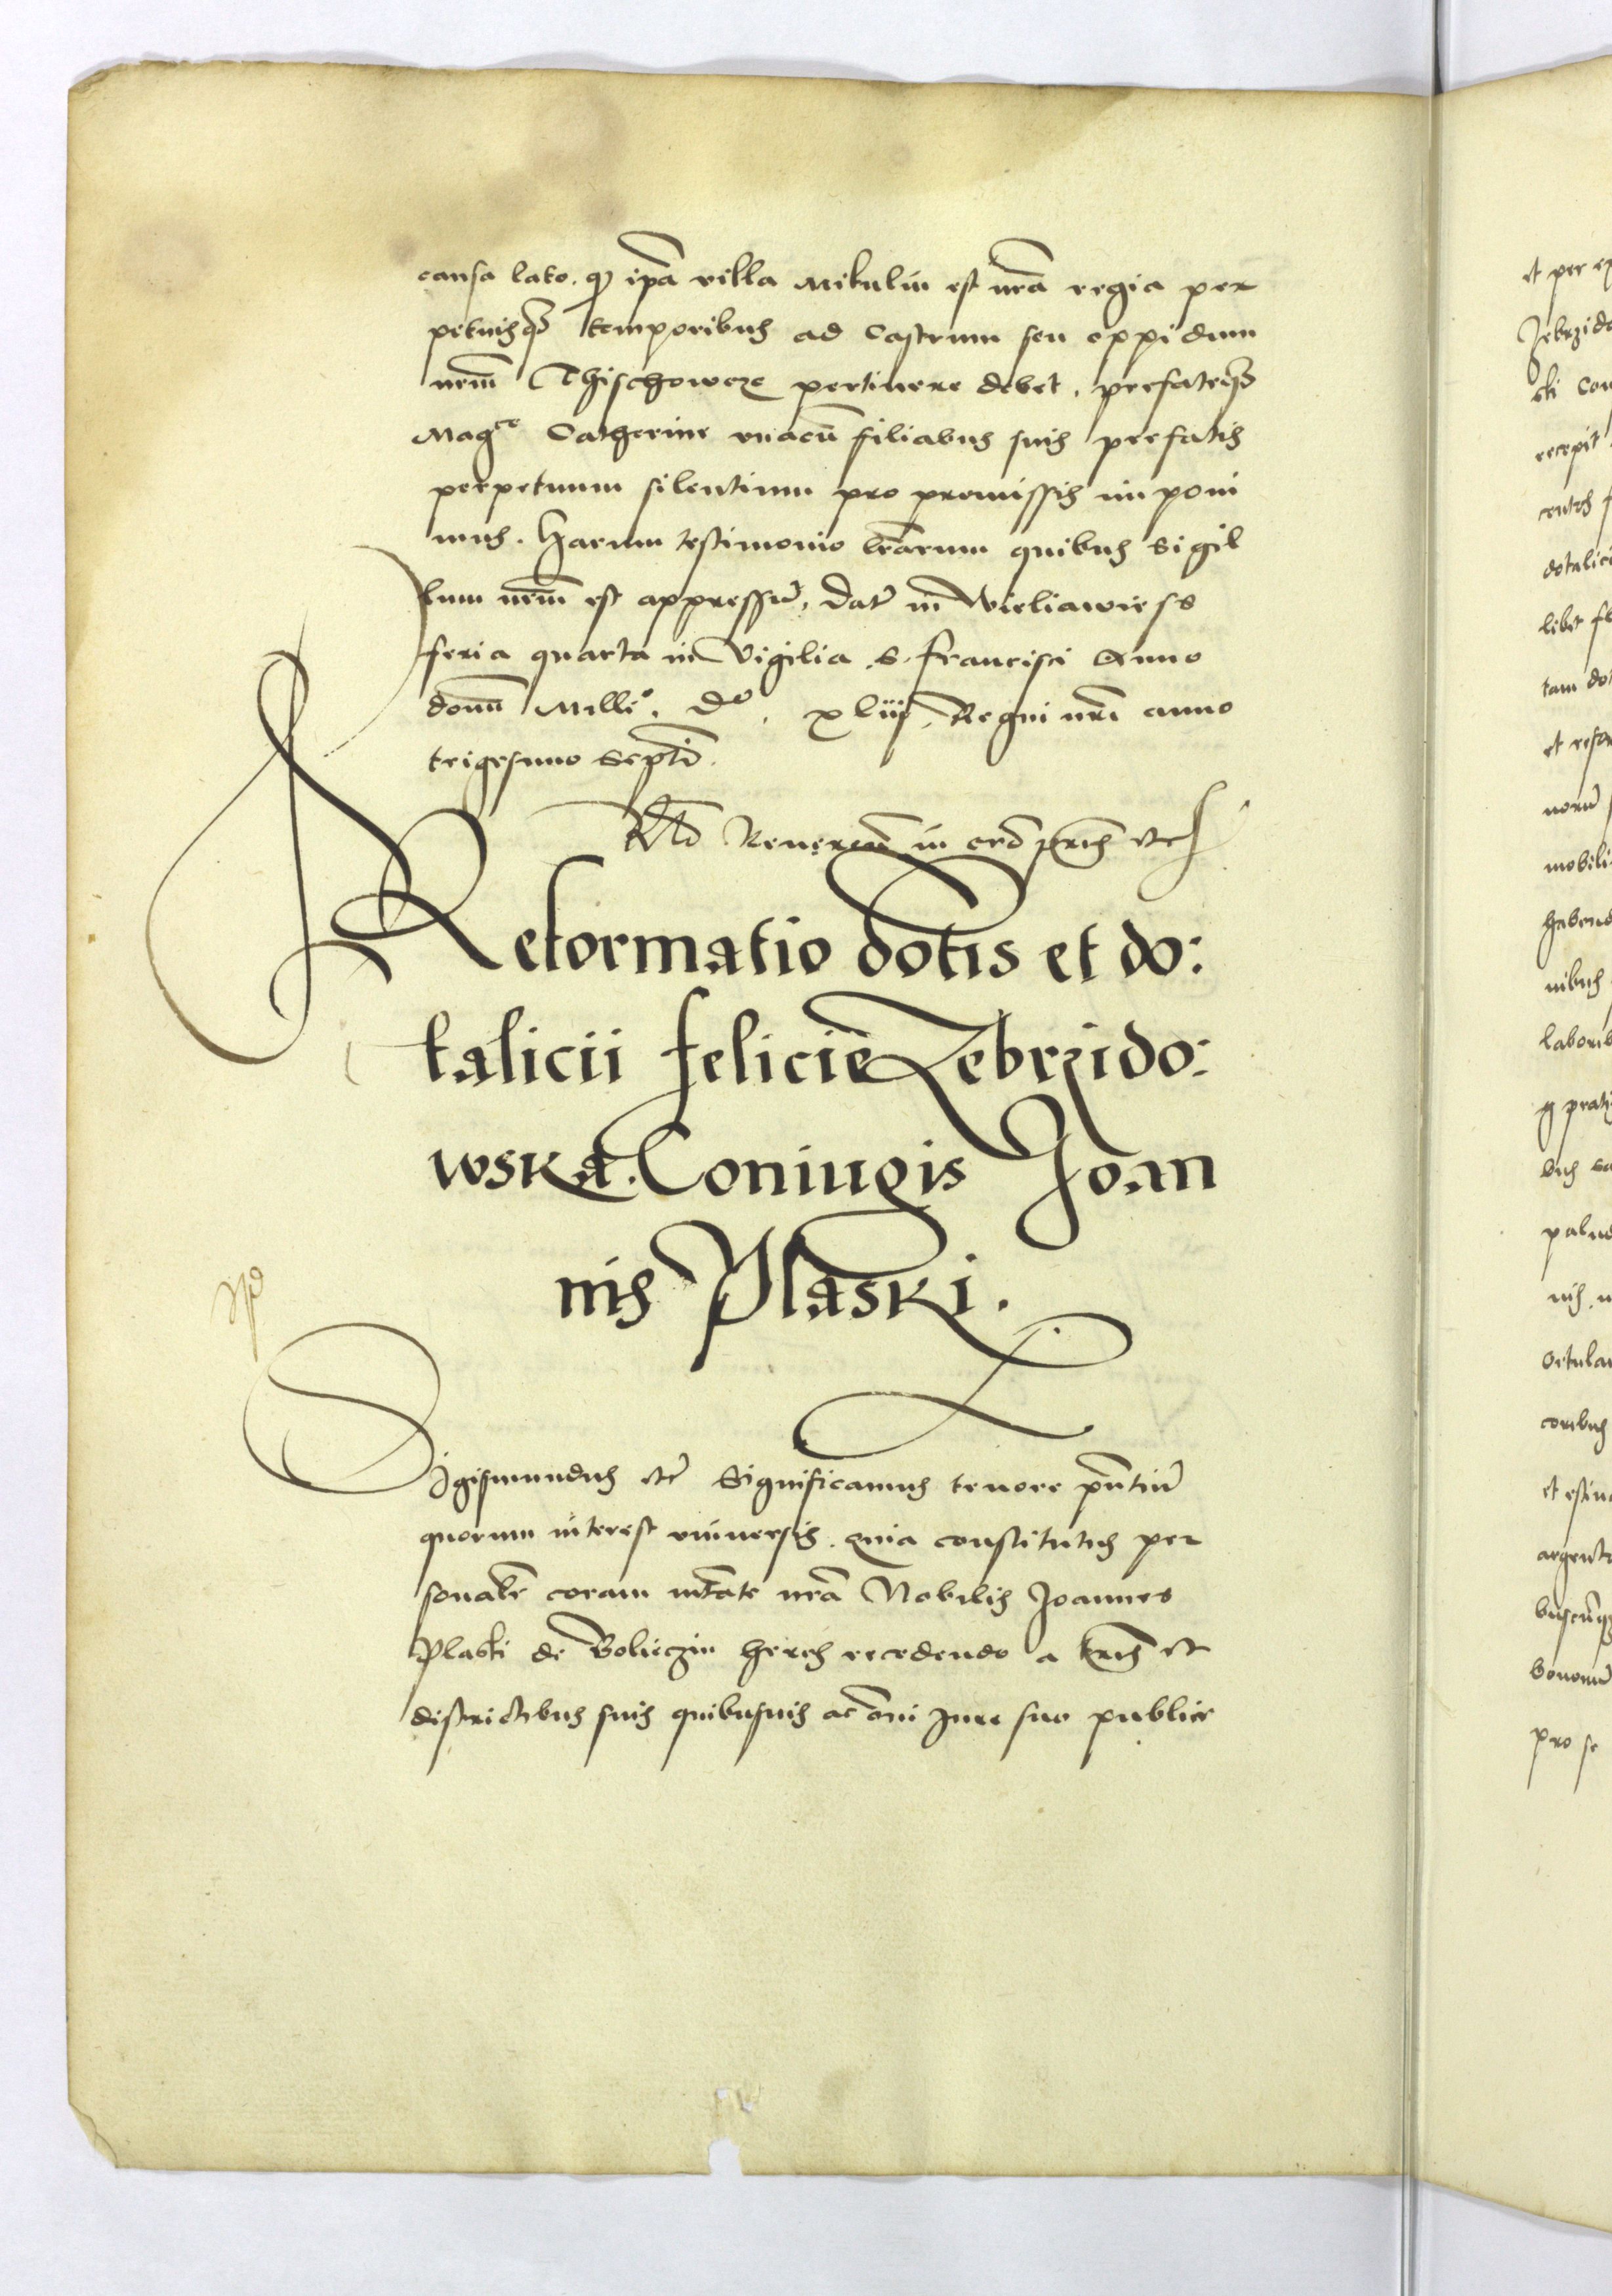 causa lato. q ipā villa Mikulin est nrā regia per
petuisq temporibus ad Castrum seu oppidum
nrm̄ Thischowcze pertinere debet. prefateq
Mag^ce Catherine vnacū filiabus suis prefatis
perpetuum silentium pro premissis imponi
mus. Harum testimonio lrārum quibus Sigil
lum nrm̄ est appressū. Datū in Wieliawiess
feria quarta in Vigilia S. Francisci Anno
domī Mill̄o. D^o. xliij. Regni nrī anno
trigesimo Septī.
Rtō Reuerēn in crō prīs etc
Reformatio dotis et do:
talicii felicie Zebrzido:
wska. Coniugis Joan
nis Plaski.
Sigismundus etc Significamus tenore pn̄tiū
quorum interest vniuersis. quia constitutus per
sonalr̄ coram mtāte nrā Nobilis Joannes
Plaski de Bolieczin heres recedendo a trīs et
districtibus suis quibusuis ac om̄i Jure suo publice
et per
Zebrzido
recepit
dotalici
libet
tam dot
mobili
habend
nibus
labori
prati
palud
nis.
coribus
argent
bonorū
pro se